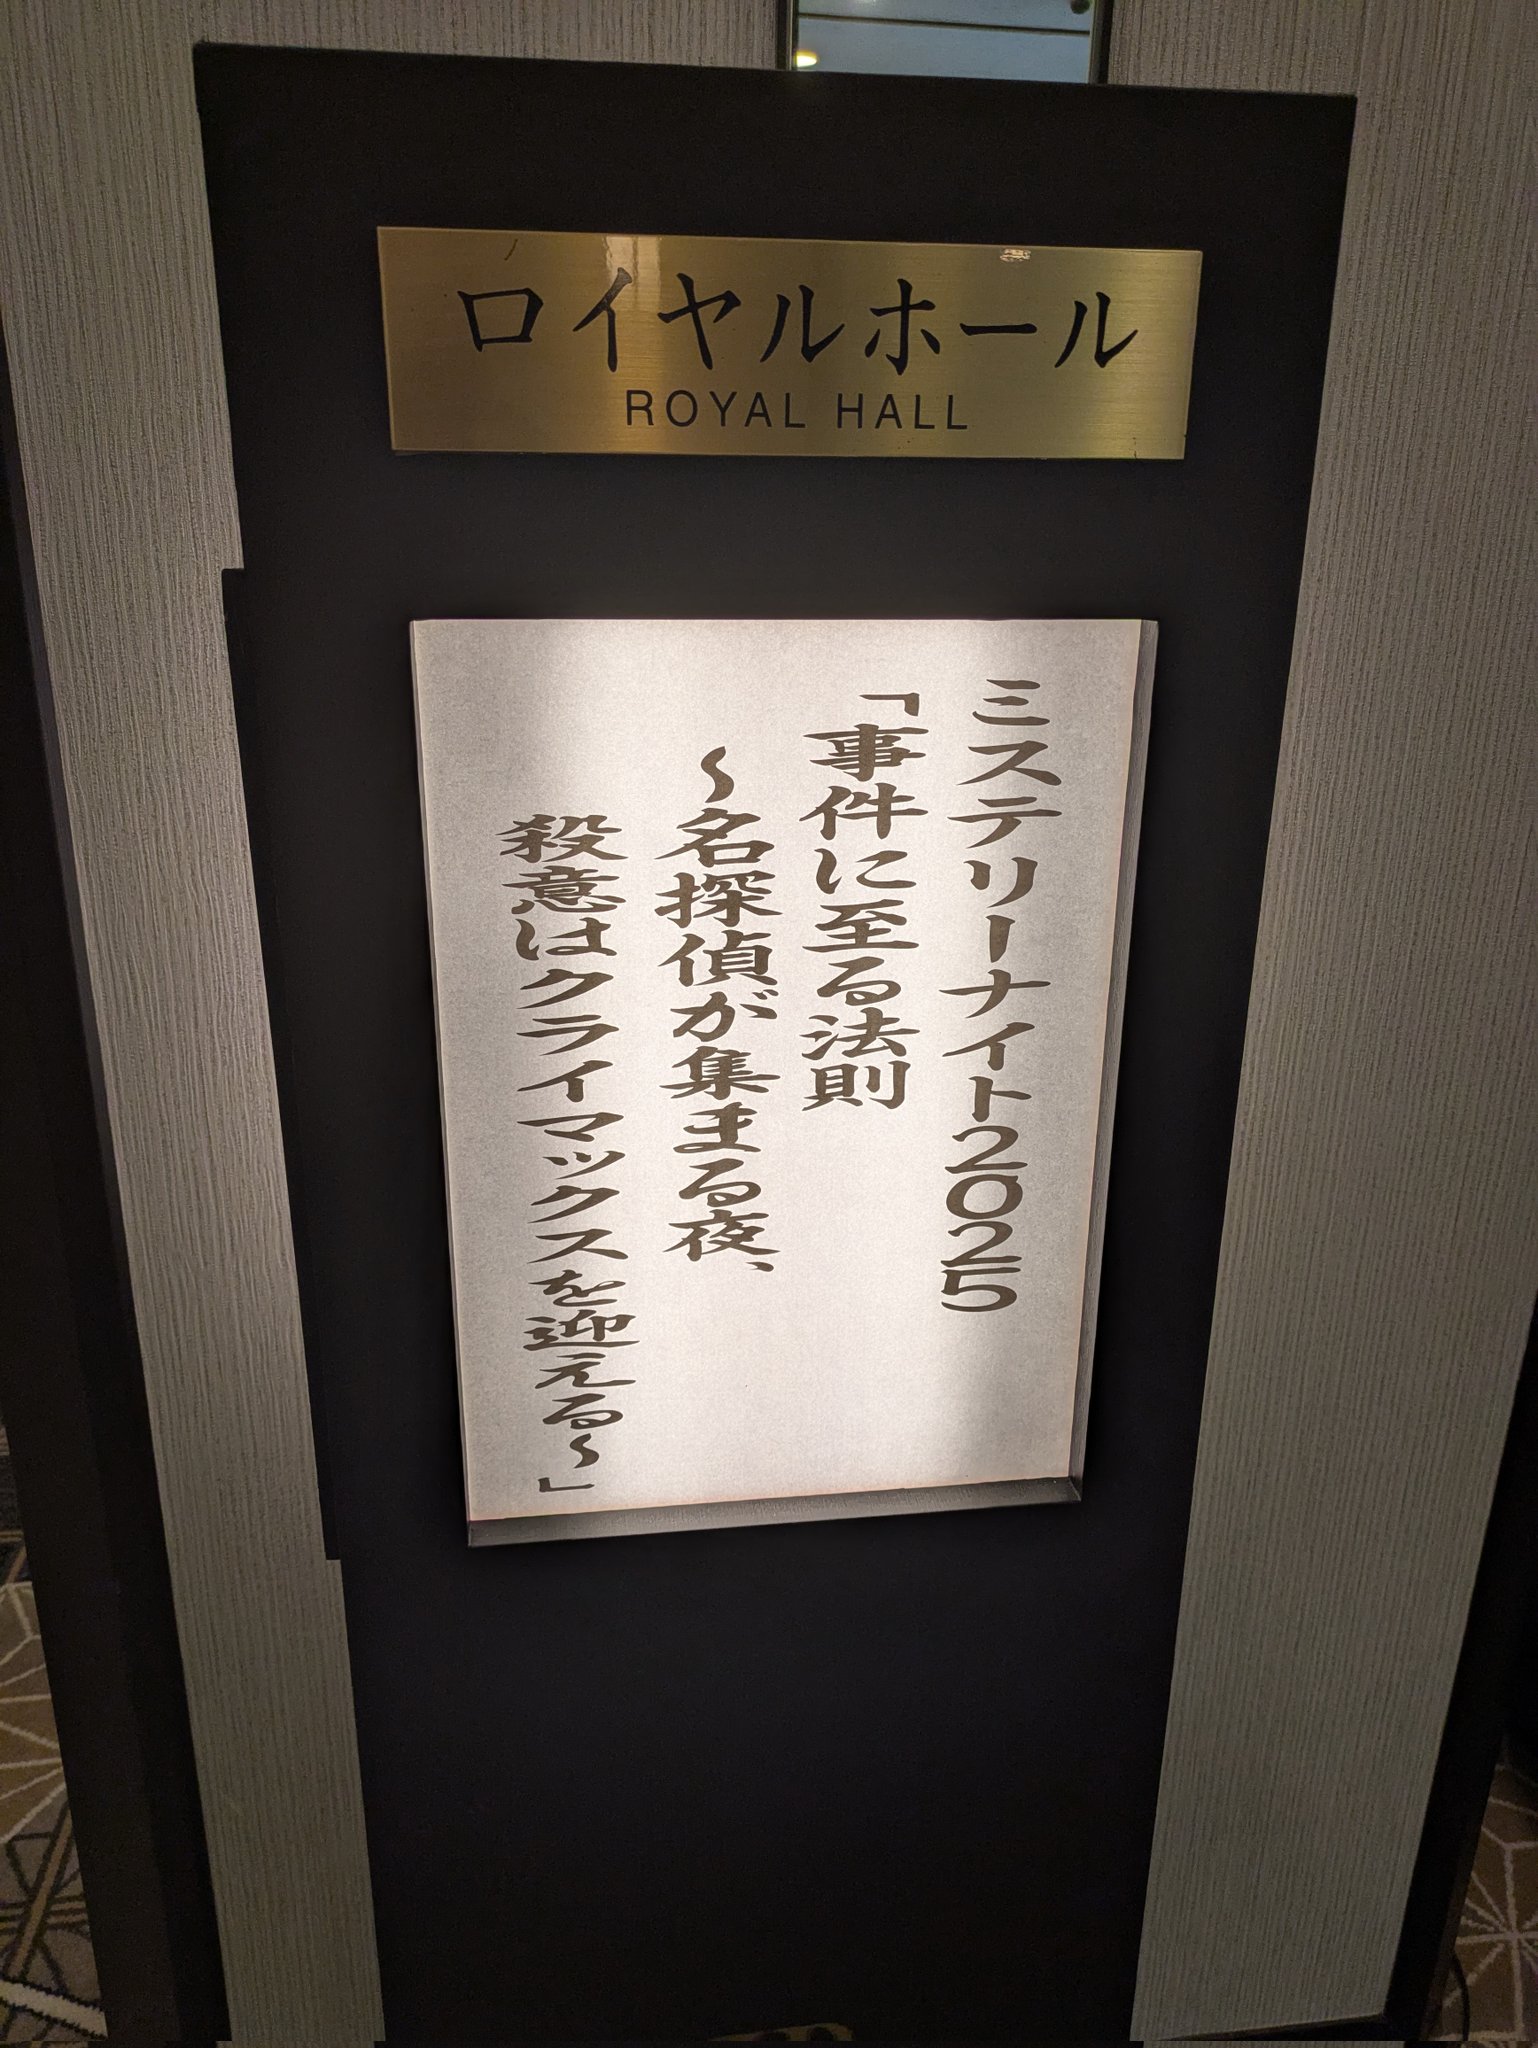 ロイヤルホール
ROYAL HALL
ミステリーナイト2025
「事件に至る法則
～名探偵が集まる夜、
殺意はクライマックスを迎える～」